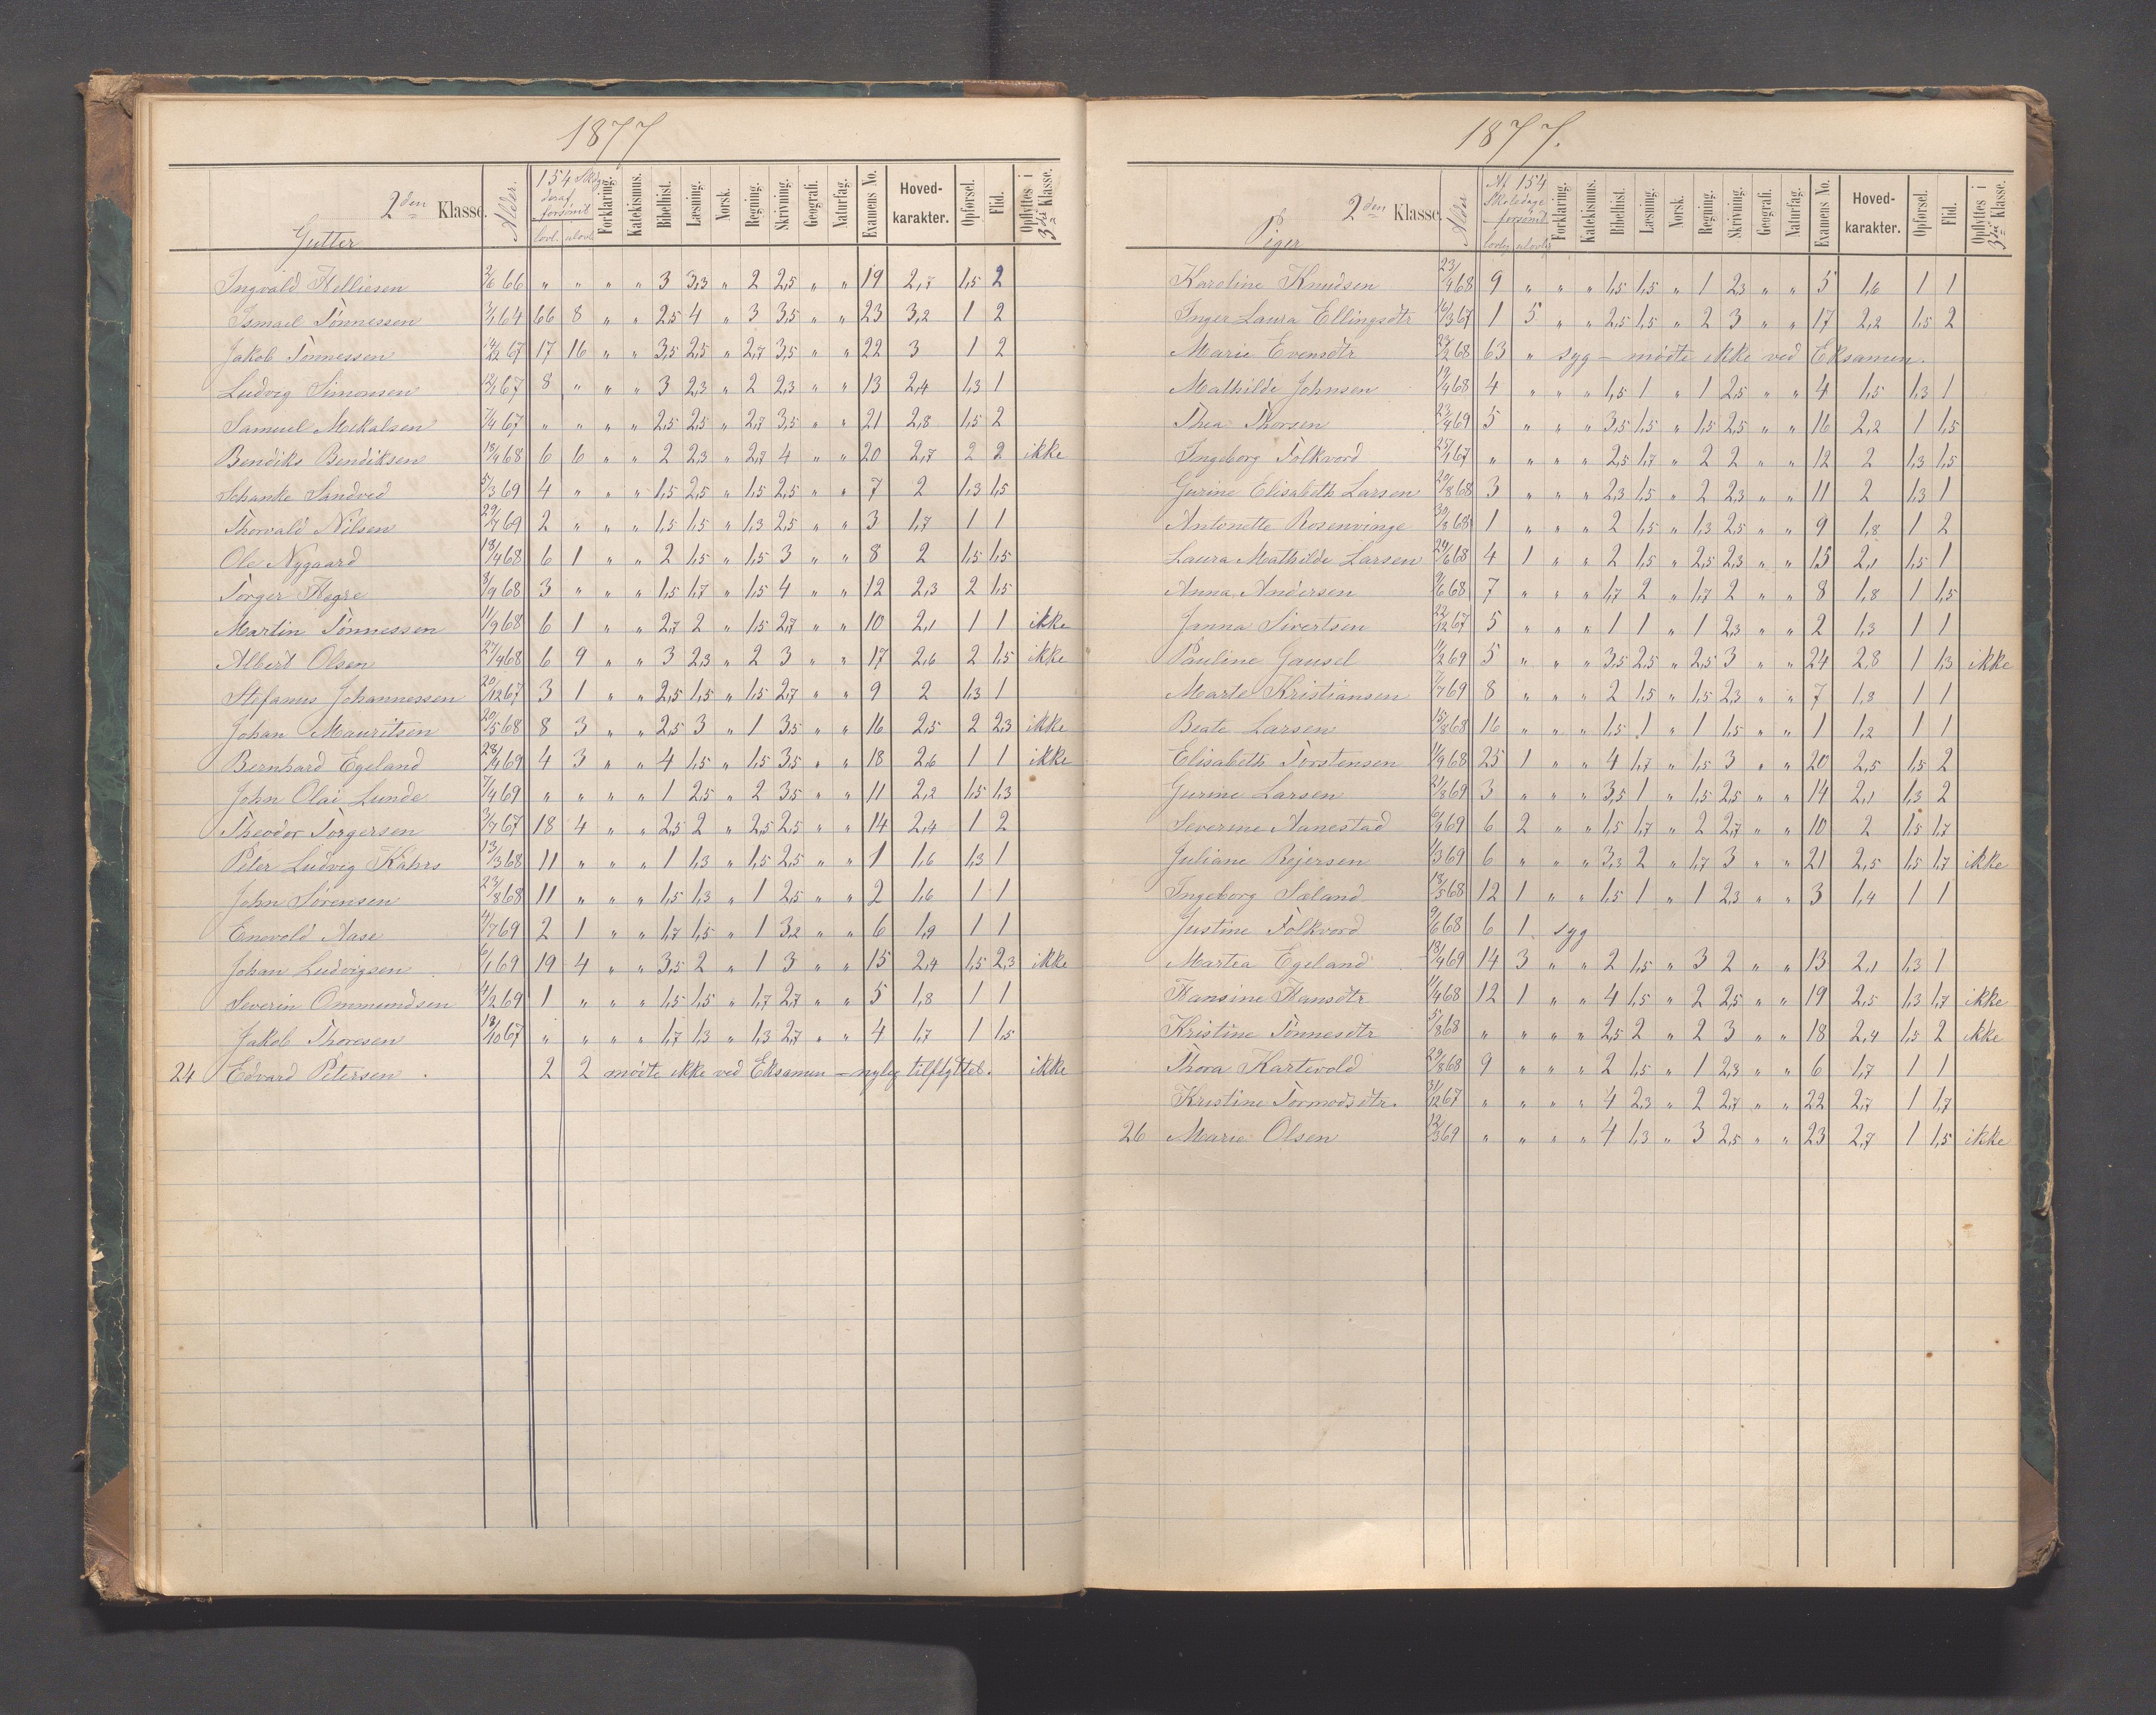 1877
2den Klasse. Alder. 154 deraf forsømt lovl. ulovl. Forklaring. Katekismus. Bibelhist. Læsning. Norsk. Regning. Skrivning. Geografi. Naturfag. Examens No. Hoved-karakter. Opførsel. Flid. Opflyttes i 3die Klasse.
Gutter
Ingvald Helliesen 2/6 66 " " " " 3 3,3 " 2 2,5 " " 19 2,7 1,5 2
Ismael Tønnessen 3/1 64 66 8 " " 2,5 4 " 3 3,5 " " 23 3,2 1 2
Jakob Tønnessen 67 17 16 " " 3,5 2,5 " 2,7 3,5 " " 22 3 1 2
Ludvig Simonsen 67 8 " " " 3 2,3 " 2 2,3 " " 13 2,4 1,3 1
Samuel Mikalsen 7/4 67 " " " " 2,5 2,5 " 2,7 3,5 " " 21 2,8 1,5 2
Bendiks Bendiksen 18/9 68 6 6 " " 2 2,3 " 2,7 4 " " 20 2,7 2 2 ikke
Schanke Sandved 5/3 69 4 " " " 1,5 2,5 " 1,5 2,5 " " 7 2 1,3 1,5
Thorvald Nilsen 29/7 69 2 " " " 1,5 1,5 " 1,3 2,5 " " 3 1,7 1 1
Ole Nygaard 18/4 68 6 1 " " 2 1,5 " 1,5 3 " " 8 2 1,5 1,5
Torger Hegre 8/9 68 3 " " " 1,5 1,7 " 1,5 4 " " 12 2,3 2 1,5
Martin Tønnessen 11/9 68 6 1 " " 2,7 2 " 1,5 2,7 " " 10 2,1 1 1 ikke
Albert Olsen 27/4 68 6 9 " " 3 2,3 " 2 3 " " 17 2,6 2 1,5 ikke
Stefanus Johannessen 20/12 67 3 1 " " 2,5 1,5 " 1,5 2,7 " " 9 2 1,3 1
Johan Mauritsen 20/5 68 8 3 " " 2,5 3 " 1 3,5 " " 16 2,5 2 2,3 ikke
Bernhard Egeland 28/4 69 4 3 " " 4 1,5 " 1,5 3,5 " " 18 2,6 1 1 ikke
John Olai Lunde 7/4 69 " " " " 1 2,5 " 2 3,5 " " 11 2,2 1,5 1,3
Theodor Torgersen 3/7 67 18 4 " " 2,5 2 " 2,5 2,5 " " 14 2,4 1 2
Peter Ludvig Kahrs 13/3 68 11 " " " 1 1,3 " 1,5 2,5 " " 1 1,6 1,3 1
John Sørensen 23/8 68 11 " " " 1,5 1,3 " 1 2,5 " " 2 1,6 1 1
Enevold Aase 4/7 69 2 1 " " 1,7 1,5 " 1 3,2 " " 6 1,9 1 1
Johan Ludvigsen 6/1 69 19 4 " " 3,5 2 " 1 3 " " 15 2,4 1,5 2,3 ikke
Severin Ommundsen 4/2 69 1 " " " 1,5 1,5 " 1,7 2,7 " " 5 1,8 1 1
Jakob Thoresen 18/10 67 " " " " 1,7 1,3 " 1,3 2,7 " " 4 1,7 1 1,5
24 Edvard Petersen. 2 2 mødte ikke ved Eksamen – nylig tilflyttet. ikke
1877.
2den Klasse Alder Af 154 Skoledage forsømt lovlig ulovlig Forklaring. Katekismus. Bibelhist. Læsning. Norsk. Regning. Skrivning. Geografi. Naturfag. Examens No. Hoved-karakter. Opførsel. Flid. Opflyttes i 3die Klasse.
Piger
Karoline Knudsen 23/9 68 9 " " " 1,5 1,5 " 1 2,3 " " 5 1,6 1 1
Inger Laura Ellingsdtr 16/3 67 1 5 " " 2,5 1,5 " 2 3 " " 17 2,2 1,5 2
Marie Evensdtr 68 63 " syg – mødte ikke ved Eksamen.
Mathilde Johnsen 19/4 68 4 " " " 1,5 1 " 1 2,5 " " 4 1,5 1,3 1
Thea Thorsen 23/4 69 5 " " " 3,5 1,5 " 1,5 2,5 " " 16 2,2 1 1,5
Ingeborg Folkvord 67 " " " " 2,5 1,7 " 2 2 " " 12 2 1,3 1,5
Gurine Elisabeth Larsen 29/8 68 3 " " " 2,3 1,5 " 2 2,3 " " 11 2 1,3 1
Antonette Rosenvinge 30/3 68 1 " " " 2 1,5 " 1,3 2,5 " " 9 1,8 1 2
Laura Mathilde Larsen 24/6 68 4 1 " " 2 1,5 " 2,5 2,3 " " 15 2,1 1,5 1
Anna Andersen 9/6 68 7 " " " 1,7 2 " 1,7 2 " " 8 1,8 1 1,5
Janna Sivertsen 22/12 67 5 " " " 1 1 " 1 2,3 " " 2 1,3 1 1
Pauline Gausel 11/2 69 5 " " " 3,5 2,5 " 2,5 3 " " 24 2,8 1 1,3 ikke
Marte Kristiansen 7/7 69 8 " " " 2 1,5 " 1,5 2,3 " " 7 1,8 1 1
Beate Larsen 15/8 68 16 " " " 1,5 1 " 1 1,5 " " 1 1,2 1 1
Elisabeth Torstensen 11/9 68 25 1 " " 4 1,7 " 1,5 3 " " 20 2,5 1,5 2
Gurine Larsen 21/8 69 3 " " " 3,5 1 " 1,5 2,5 " " 14 2,1 1,3 2
Severine Aanestad 6/9 69 6 2 " " 1,5 1,7 " 2 2,7 " " 10 2 1,5 1,7
Juliane Rejersen 1/3 69 6 " " " 3,3 2 " 1,7 3 " " 21 2,5 1,5 1,7 ikke
Ingeborg Sæland 18/5 68 12 1 " " 1,5 1 " 1 2,3 " " 3 1,4 1 1
Justine Folkvord 9/6 68 6 1 syg
Martea Egeland 18/4 69 14 3 " " 2 1,5 " 3 2 " " 13 2,1 1,3 1
Hansine Hansdtr 11/4 68 12 1 " " 4 1,5 " 2 2,5 " " 19 2,5 1,3 1,7 ikke
Kristine Tønnesdtr 5/8 68 " " " " 2,5 2 " 2 3 " " 18 2,4 1,5 2 ikke
Thora Kartevold 29/8 68 9 " " " 2 1,5 " 1 2,3 " " 6 1,7 1 1
Kristine Tormodsdtr. 31/12 67 " " " " 4 2,3 " 2 2,7 " " 22 2,7 1 1,7
26 Marie Olsen 12/3 69 " " " " 4 1,3 " 3 2,5 " " 23 2,7 1 1,5 ikke